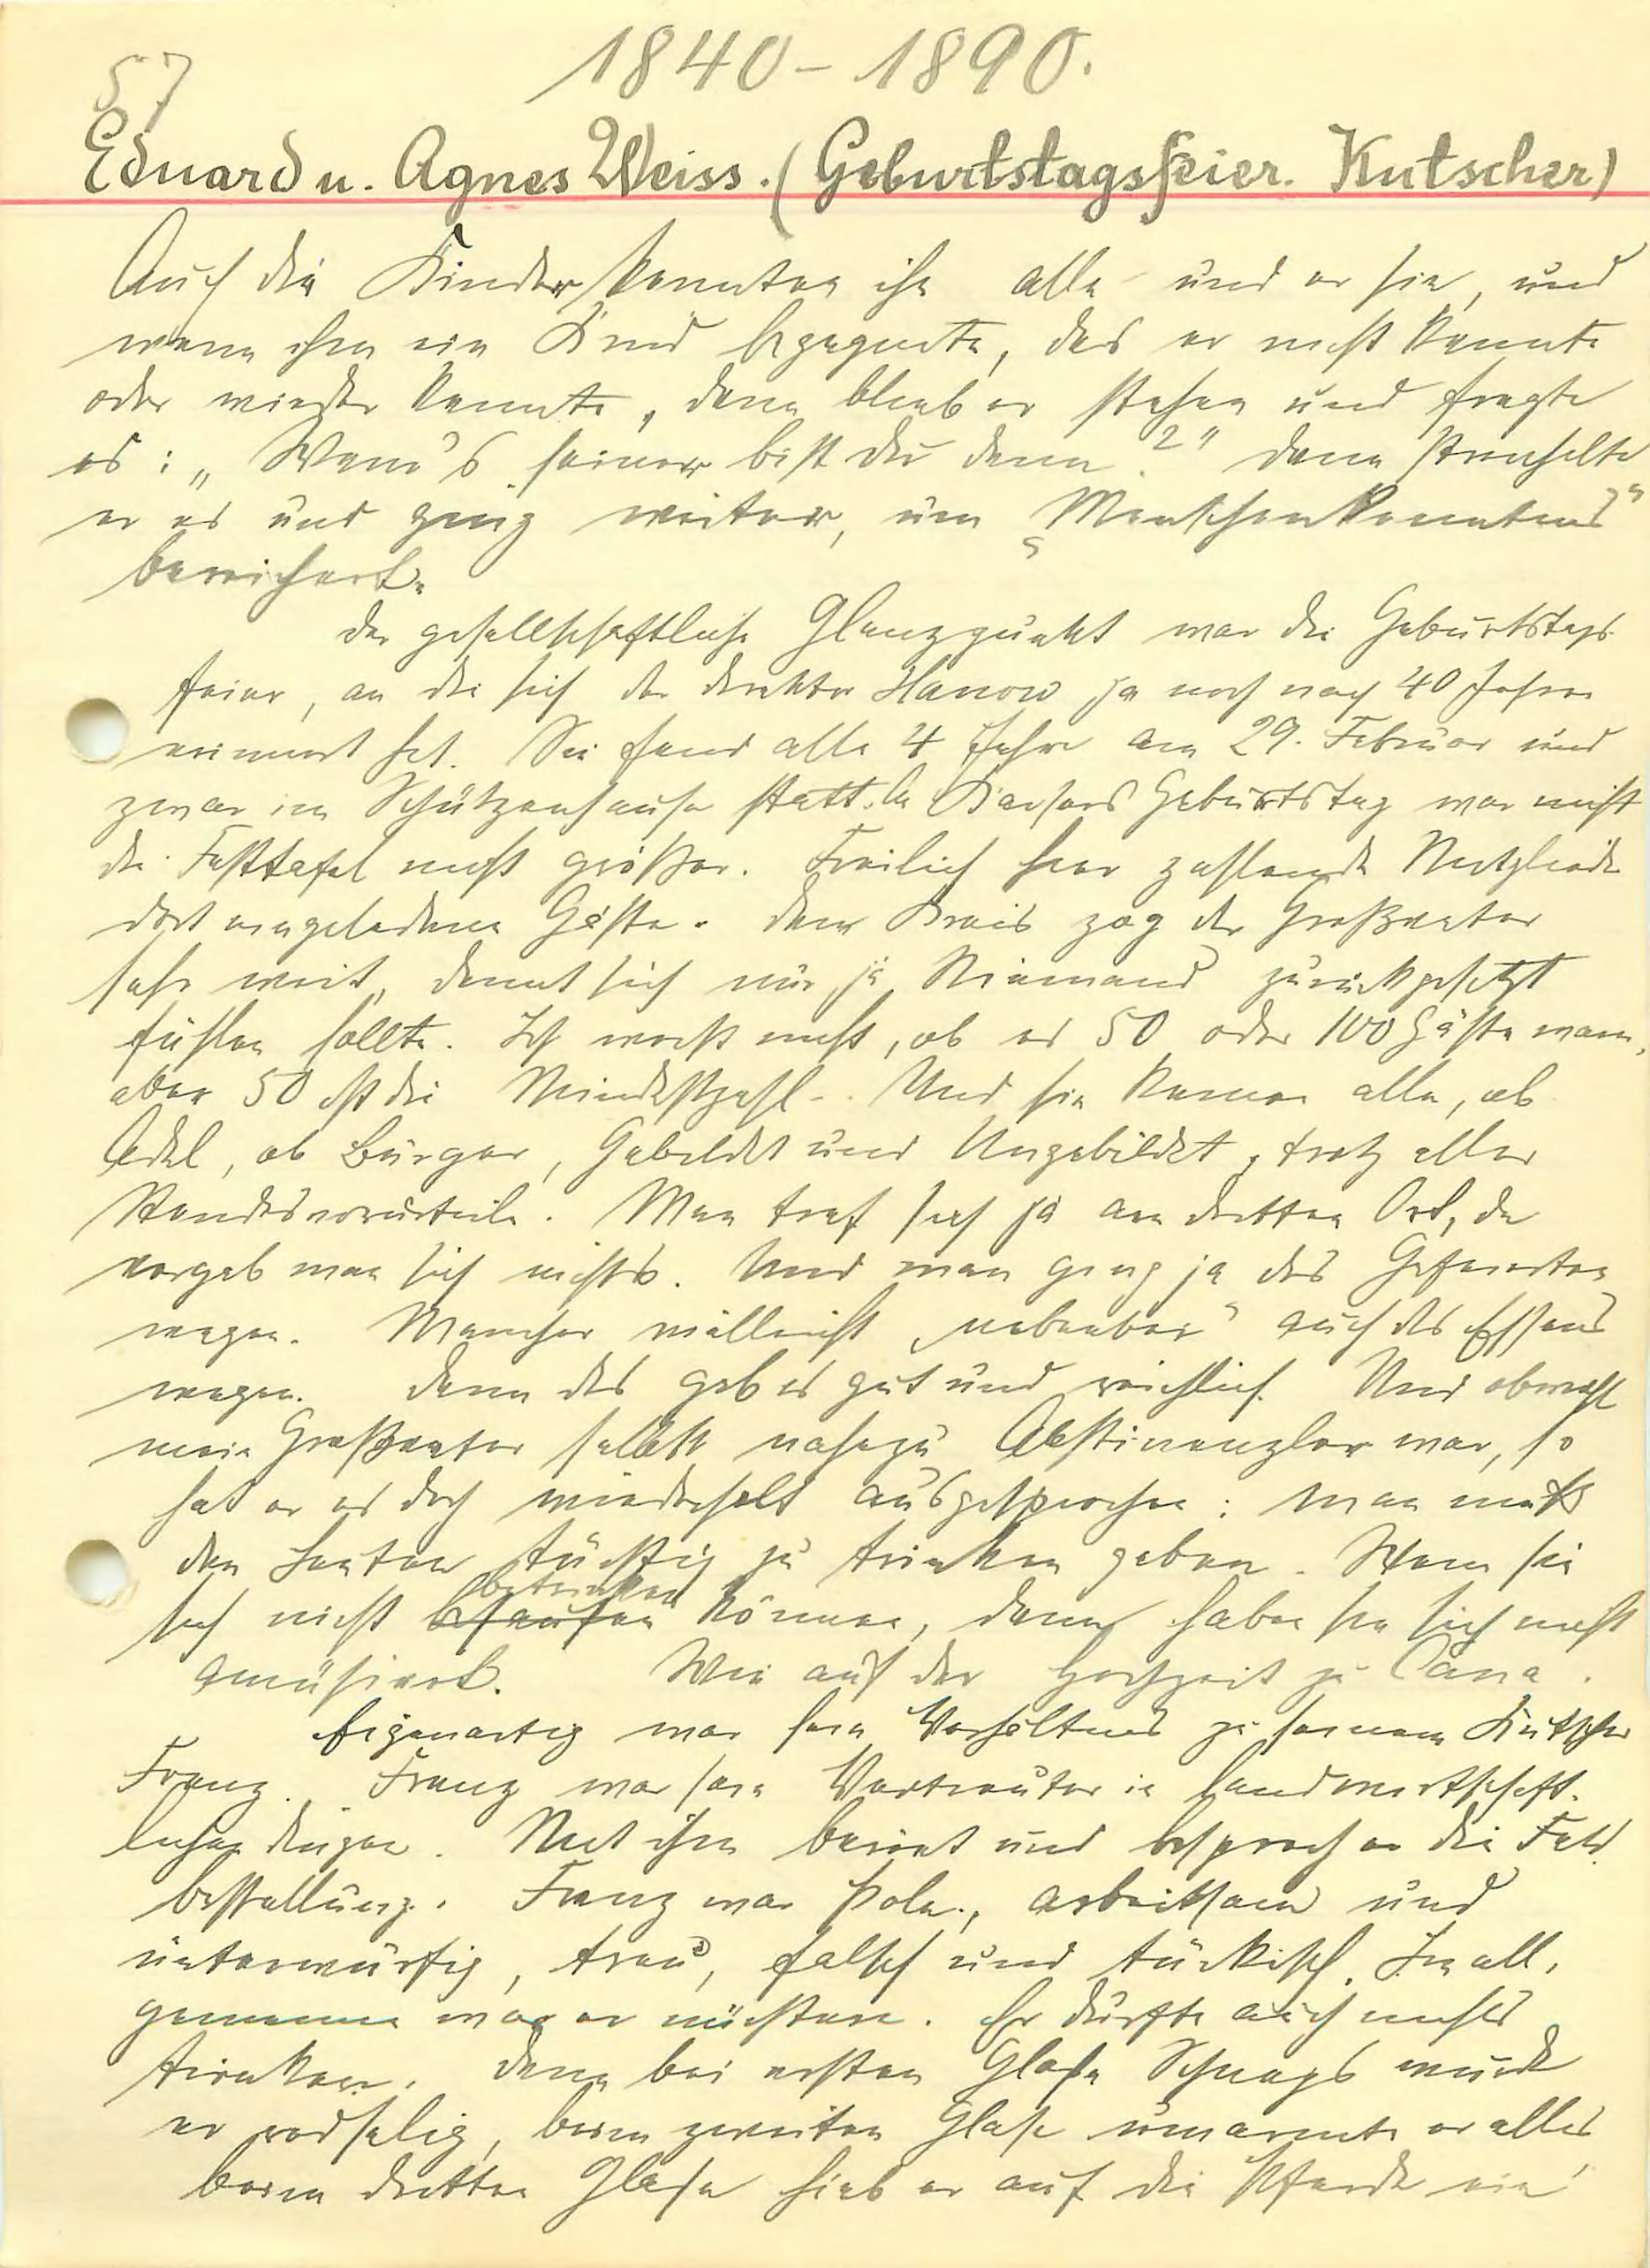 57
1840-1890.
Eduard u. Agnes Weiss. (Geburtstagsfeier. Kutscher)
Auch die Kinder kannten ihn alle und er sie, und
wenn ihm ein Kind begegnete, das er nicht kannte
oder wieder kannte, dann blieb er stehen und fragte
es: „Wem's seiner bist du denn?" dann streichelte
er es und ging weiter, um „Menschenkenntnis"
bereichert.
Der gesellschaftliche Glanzpunkt war die Geburtstags-
feier, an die sich der Direktor Hanow ja noch nach 40 Jahren
erinnert hat. Sie fand alle 4 Jahre am 29. Februar und
zwar im Schützenhause statt. An Kaisers Geburtstag war
die Festtafel nicht größer. Freilich hier zahlende Mitglieder
dort eingeladene Gäste. Den Kreis zog der Großvater
sehr weit, damit sich nur ja Niemand zurückgesetzt
fühlen sollte. Ich weiß nicht, ob es 50 oder 100 Gäste waren,
aber 50 ist die Mindestzahl. Und sie kamen alle, ob
Adel, ob Bürger, Gebildet und Ungebildet, trotz aller
Standesvorurteile. Man traf sich ja am dritten Ort, da
vergab man sich nichts. Und man ging ja des Gefeierten
wegen. Mancher vielleicht „nebenbei" auch des Essens
wegen. Denn das gab es gut und reichlich. Und obwohl
mein Großvater selbst nahezu Abstinenzler war, so
hat er es doch wiederholt ausgesprochen: man muß
den Leuten tüchtig zu trinken geben. Wenn sie
sich nicht betrinken können, dann haben sie sich nicht
amüsiert. Wie auf der Hochzeit zu Cana.
Eigenartig war sein Verhältnis zu seinem Kutscher
Franz. Franz war sein Vertrauter in landwirtschaft-
lichen Dingen. Mit ihm beriet und besprach er die Feld-
bestellung. Franz war Pole, arbeitsam und
unterwürfig, treu, falsch und tückisch. Im all-
gemeinen war er nüchtern. Er durfte auch nichts
trinken. Denn bei ersten Glase Schnaps wurde
er redselig, beim zweiten Glase umarmte er alles,
beim dritten Glase hieb er auf die Pferde ein